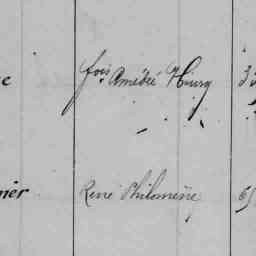 e fois Amédée Henry 3
ner René Philomène 6